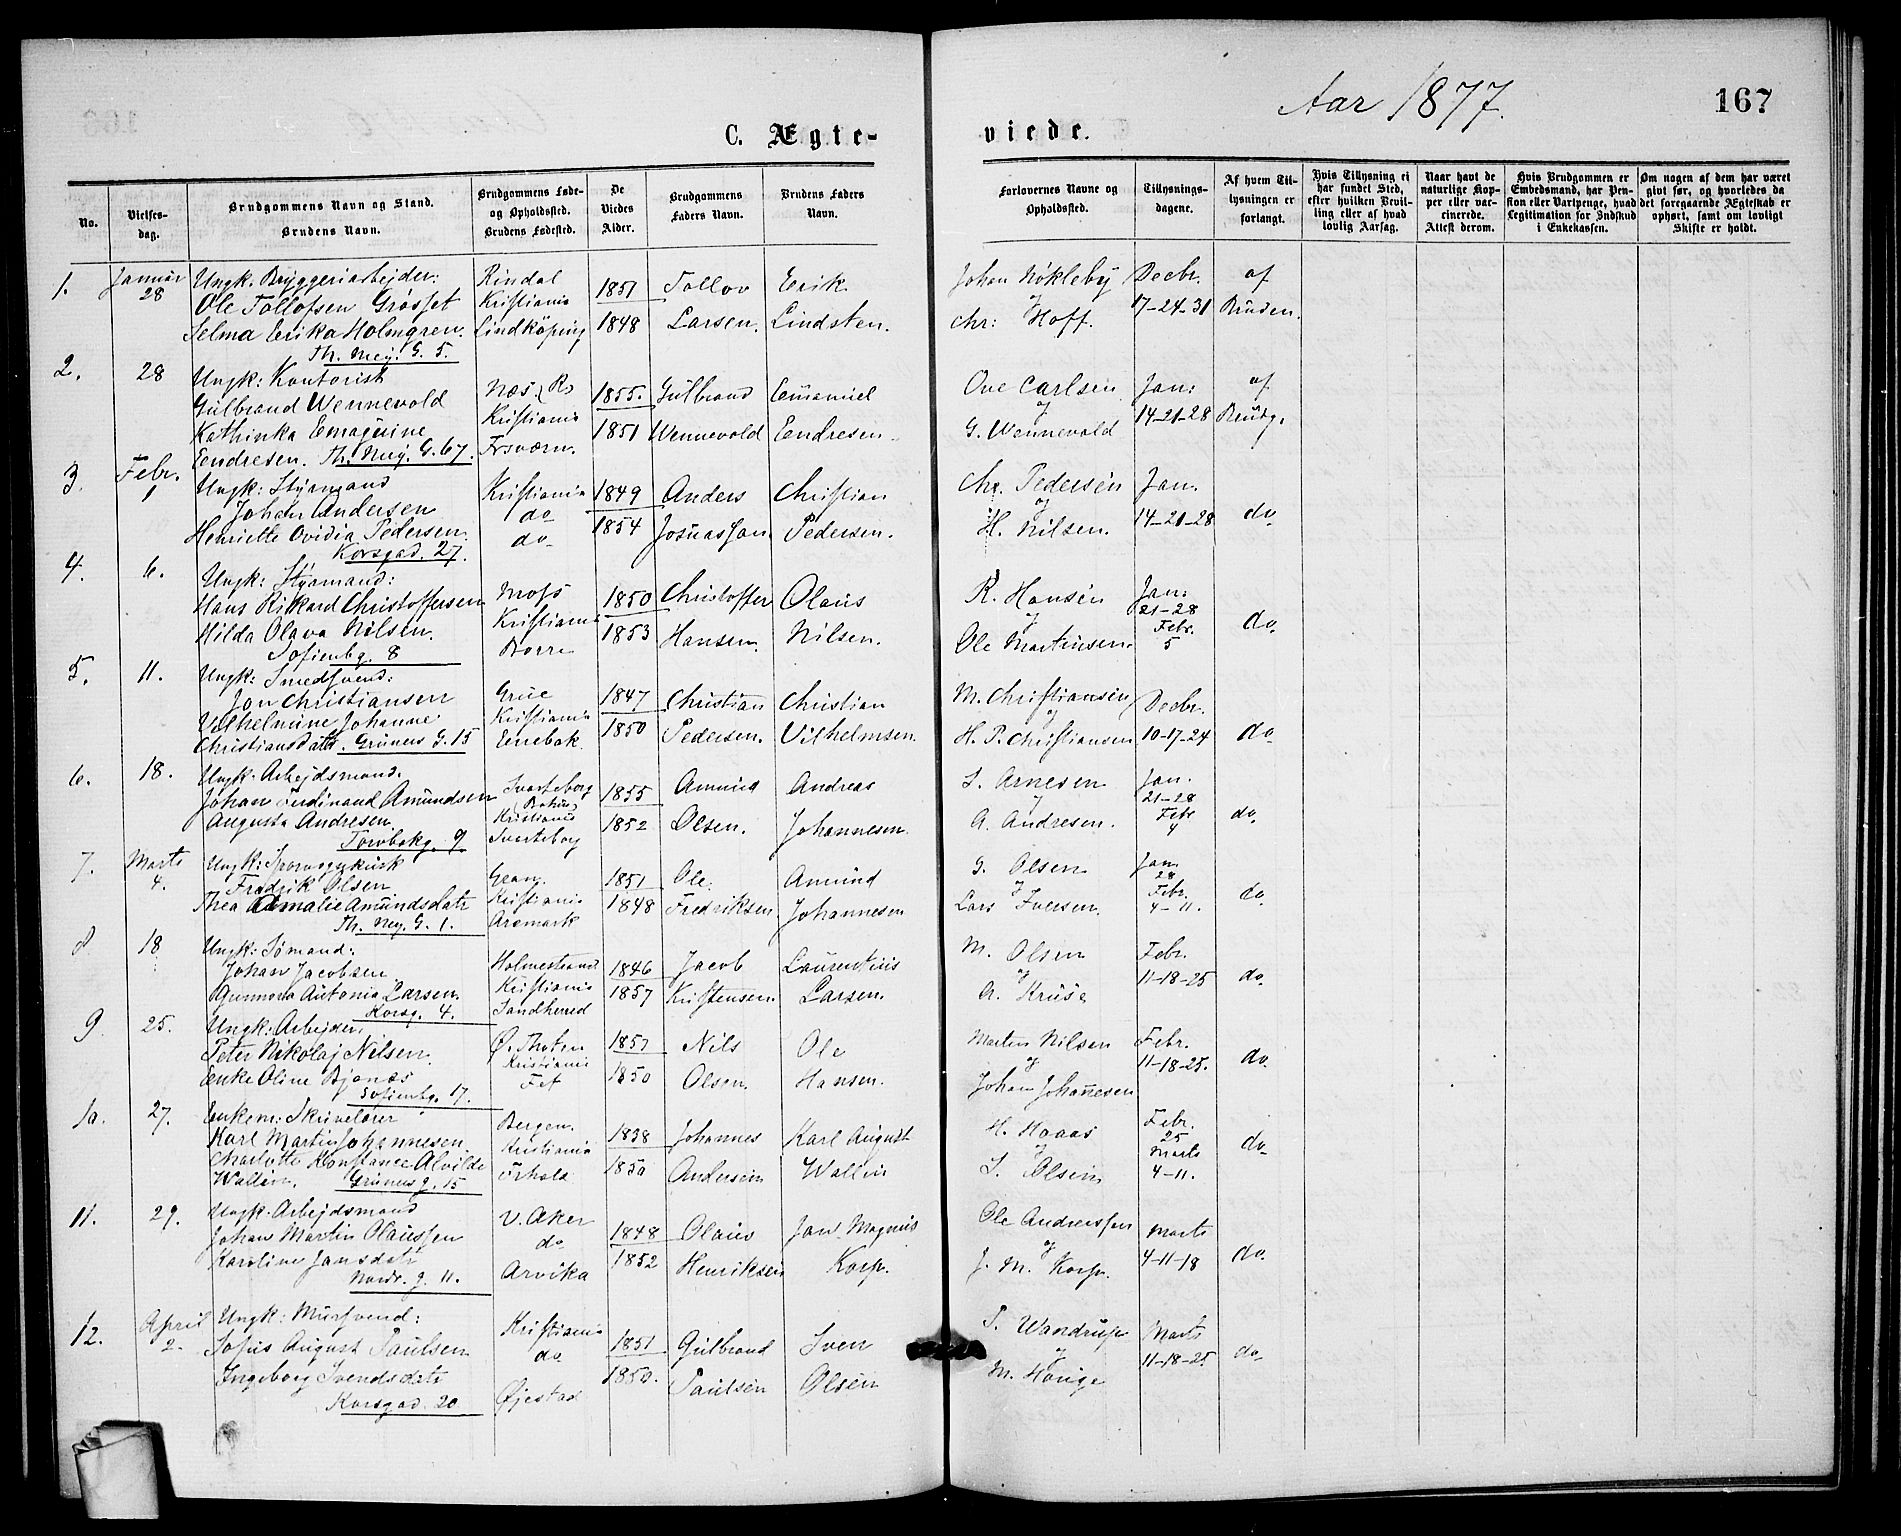 Aar 1877.
167
C. Ægte-
viede.
No.
Vielses-
dag.
Brudgommens Navn og Stand.
Brudens Navn.
Brudgommens Føde-
og Opholdsted.
Brudens Fødested.
De
Viedes
Alder.
Brudgommens
Faders Navn.
Brudens Faders
Navn.
Forlovernes Navne og
Opholdsted.
Tillysnings-
dagene.
Af hvem Til-
lysningen er
forlangt.
Hvis Tillysning ei
har fundet Sted,
efter hvilken Bevil-
ling eller af hvad
lovlig Aarsag.
Naar havt de
naturlige Kop-
per eller vac-
cinerede.
Attest derom.
Hvis Brudgommen er
Embedsmand, har Pen-
sion eller Vartpenge, hvad
Legitimation for Indskud
i Enkekassen.
Om nogen af dem har været
givt før, og hvorledes da
det foregaaende Ægteskab er
ophørt, samt om lovligt
Skifte er holdt.
1.
Januar
28
Ungk. Bryggeriarbejder:
Ole Tollofsen Grosset
Selma Erika Holmgren.
Th. Mey. G. 5.
Rindal
Kristiania
Lindköping
1851
1848
Tollov
Larsen.
Erik
Lindsten.
Johan Nökleby
og
Chr: Hoff.
Decbr.
17-24-31
af
Bruden.
2.
28
Ungk: Kontorist
Gulbrand Wennevold
Kathinka Emagine
Eendresen. Th. Mey. G. 67.
Næs. (R)
Kristiania
Fr.værn.
1855.
1851
Gulbrand
Wennevold
Emanuel
Eendresen
Ove Carlsen
og
G. Wennevold
Jan:
14-21-28
af
Brudg.
3.
Febr.
1
Ungk: Styrmand
Johan Andersen
Henriette Ovidia Pedersen
Korsgad. 27.
Kristiania
do
do
1849
1854
Anders
Josuassen
Christian
Pedersen.
Chr. Pedersen
og
H. Nilsen.
Jan.
14-21-28
do
4.
6.
Ungk: Styrmand:
Hans Rikard Christoffersen
Hilda Olava Nilsen.
Sofienbg. 8
Moss
Kristiania
Borre
1850
1853
Christoffer
Hansen.
Olaus
Nilsen.
R. Hansen
og
Ole Martinsen.
Jan:
21-28
Febr.
5
do.
5.
11.
Ungk: Smedsvend:
Jon Christiansen
Vilhelmine Johanne
Christiansdatt. Grüners G. 15
Grue
Kristiania
Enebak
1847
1850
Christian
Pedersen.
Christian
Vilhelmsen
M. Christiansen
og
H. P. Christiansen
Decbr.
10-17-24
do
6.
18.
Ungk. Arbejdsmand.
Johan Ferdinand Amundsen
Augusta Andresen
Torvbakg. 9.
Svarteborg
(Bohus)
Kristiania
Svarteborg
1855
1852
Amund
Olsen.
Andreas
Johannesen
S. Arnesen
og
A. Andresen.
Jan.
21-28
Febr
4
do.
7.
Marts
4.
Ungk: Sporvognskusk
Fredrik Olsen
Thea Amalie Amundsdatr
Th. Mey. G. 1.
Kristiania
Aremark
1851
1848
Ole
Fredriksen
Amund
Johannesen
G. Olsen
og
Lars Iversen.
Jan.
28
Febr.
4-11.
do.
8
18
Ungk: Sømand:
Johan Jacobsen
Gunnora Antonia Larsen.
Korsg. 4.
Holmestrand
Kristiania
Sandherred
1846
1857
Jacob
Kristensen
Laurentius
Larsen.
M. Olsen
og
A. Kruse
Febr.
11-18-25
do.
9
25.
Ungk: Arbejder.
Peter Nikolaj Nilsen.
Enke Oline Bjenæs
Sofienbg. 17.
Ø. Thoten
Kristiania
Fet
1851
1850
Nils
Olsen.
Ole
Hansen.
Martin Nilsen
og
Johan Johannesen
Febr.
11-18-25.
do.
10.
27.
Enkem: Skruelører
Karl Martin Johannesen
Charlotte Konstance Alvilde
Wallein. Grüners g. 15
Bergen.
Kristiania
1838
1850
Johannes
Andersen
Karl August
Wallin
H. Haaas
og
S. Olsen
Febr.
25
Marts
4-11.
do-
11.
29.
Ungk. Arbejdsmand
Johan Martin Olaussen
Karoline Jansdatr
Nordr. g. 11.
V. Aker
do
Arvika
1848
1852
Olaus
Henriksen
Jan Magnus
Korp.
Ole Andreassen
og
J. M. Korp.
Marts
4-11-18
do.
12.
April
2.
Ungk: Mursvend:
Sofus August Paulsen
Ingeborg Svendsdatr
Korsgad. 20
Kristiania
do
Øjestad
1851
1850.
Gulbrand
Paulsen
Sven
Olsen
P. Wandrup
og
M. Hauge
Marts
11-18-25
do-